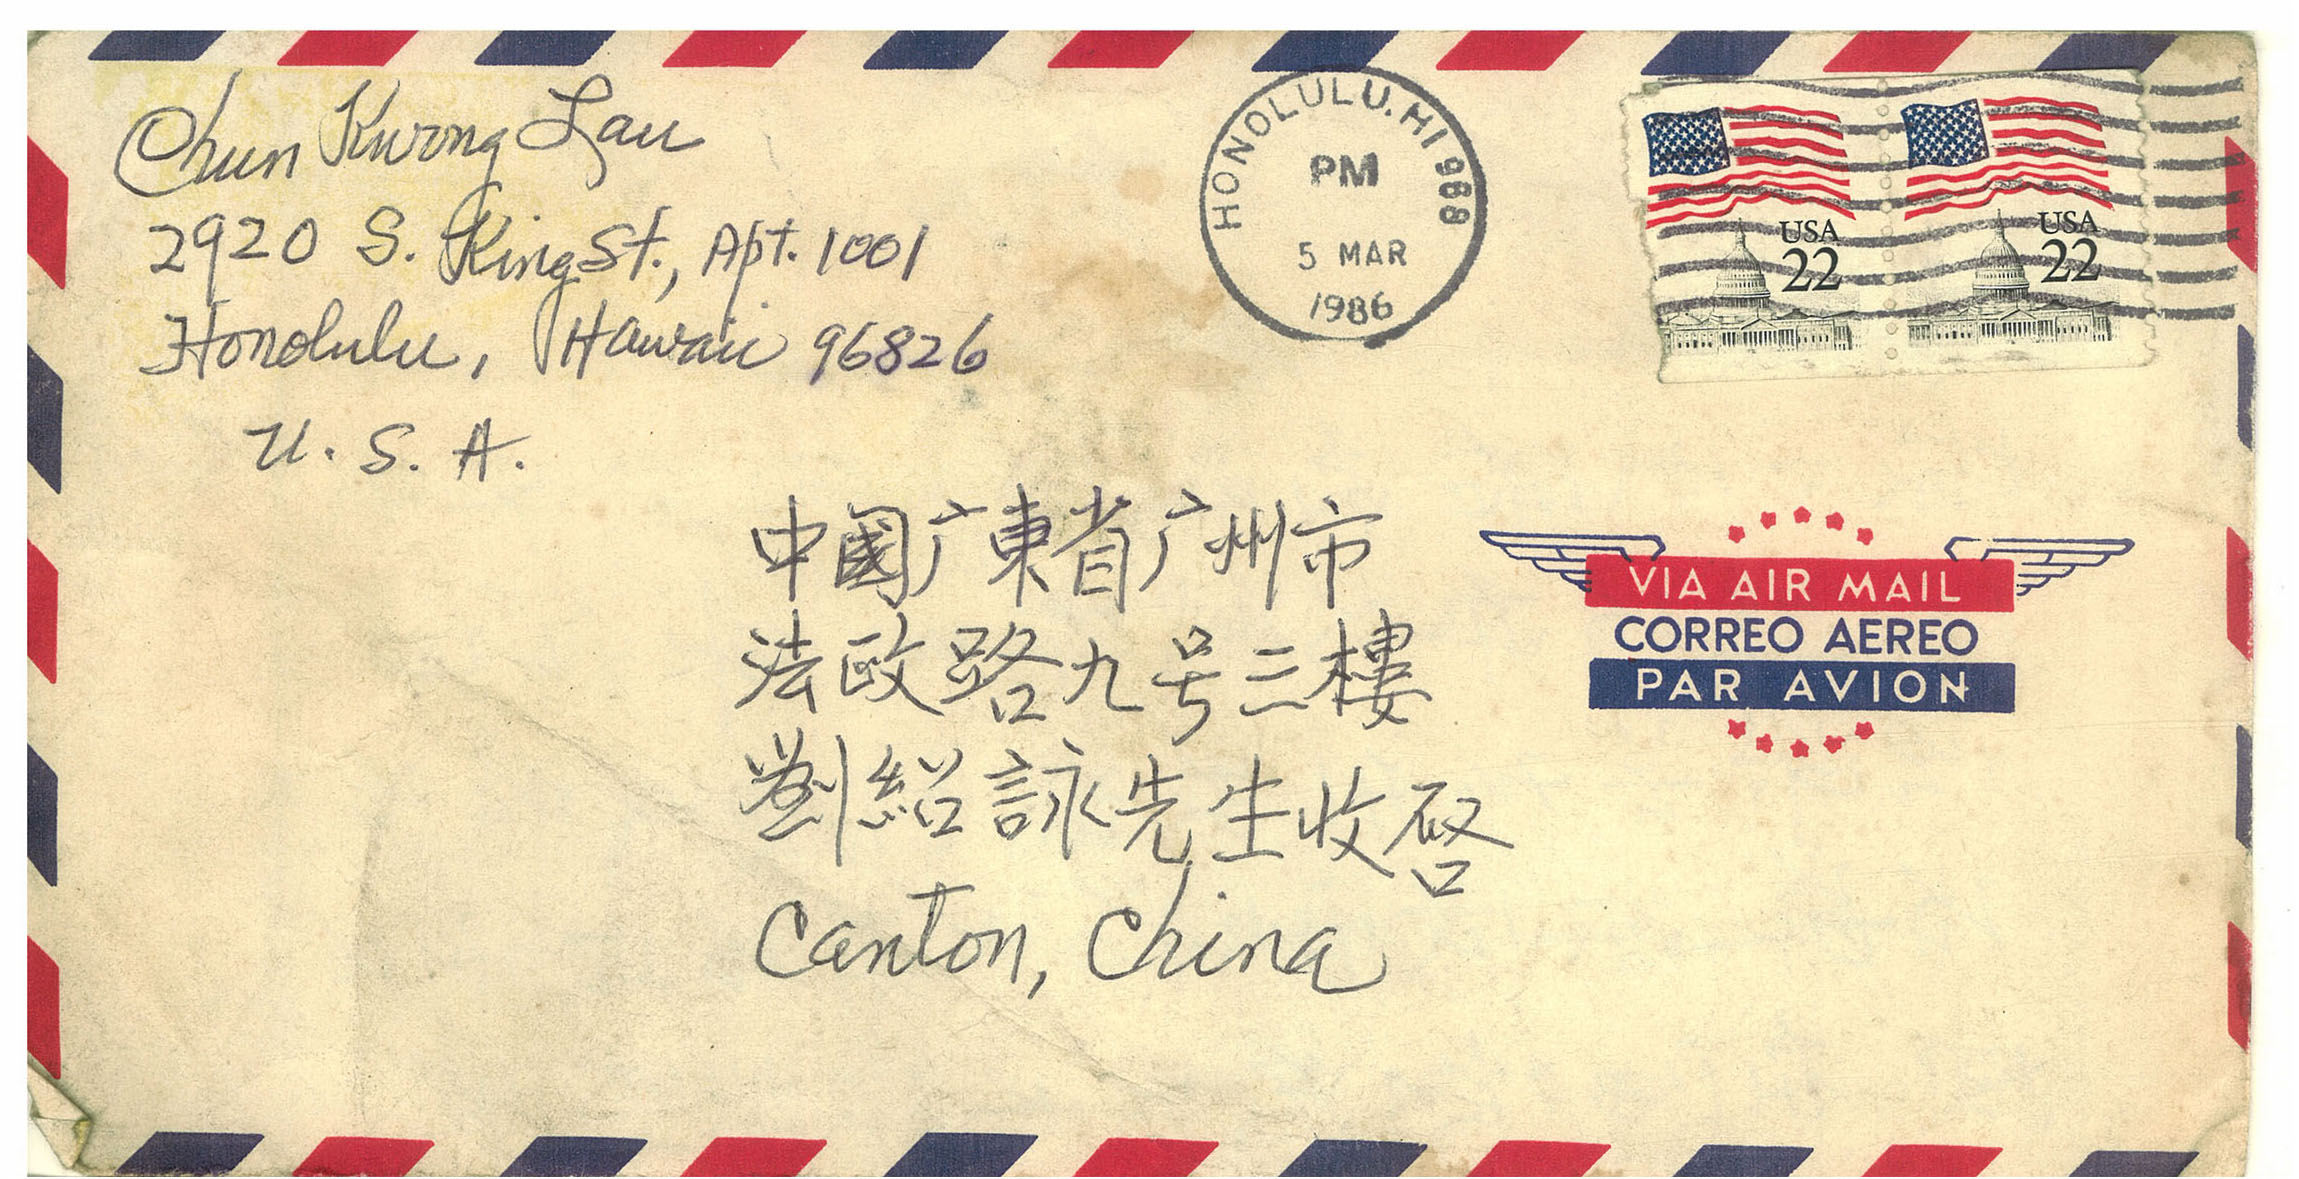 Chun Kwong Lau
2920 S. King St., Apt. 1001
Honolulu, Hawaii 96826
U. S. A.
HONOLULU. HI 968
PM
5 MAR
1986
USA
22
USA
22
中國广東省广州市
法政路九号三樓
劉紹詠先生收啓
Canton, China
VIA AIR MAIL
CORREO AEREO
PAR AVION